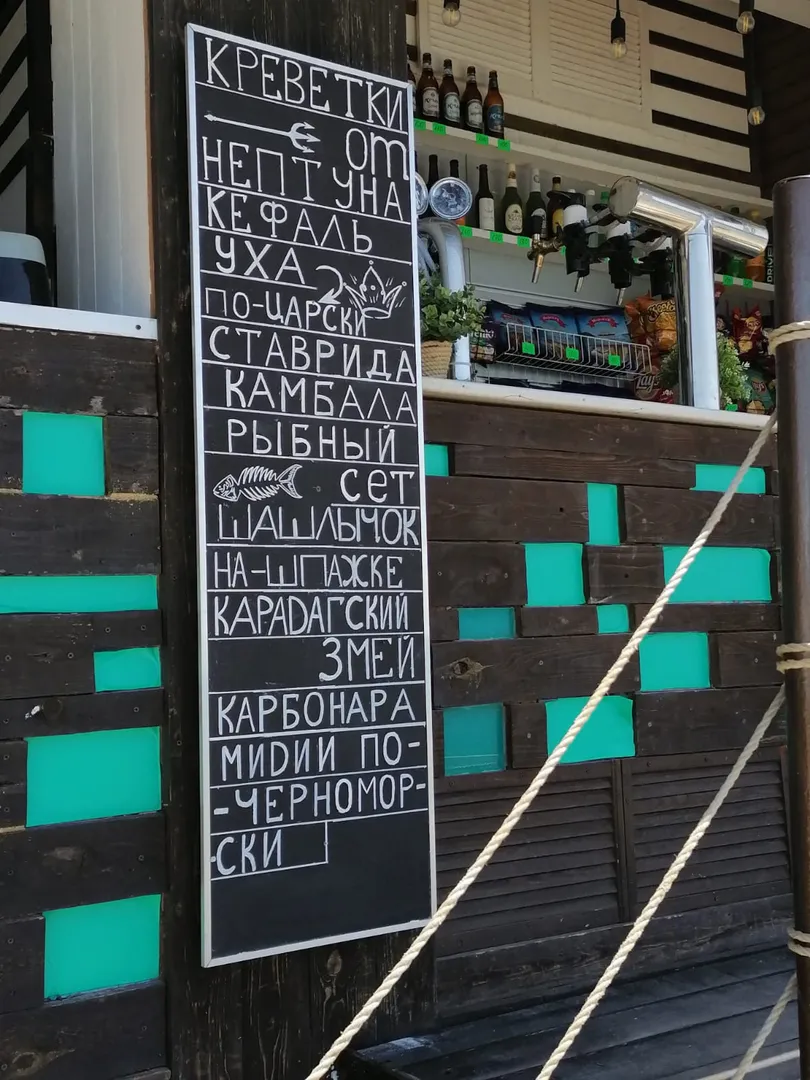 КРЕВЕТКИ
ОТ
НЕПТУНА
КЕФАЛЬ
УХА
ПО-ЦАРСКИ
СТАВРИДА
КАМБАЛА
РЫБНЫЙ
СЕТ
ШАШЛЫЧОК
НА-ШПАЖКЕ
КАРАДАГСКИЙ
ЗМЕЙ
КАРБОНАРА
МИДИИ ПО-
-ЧЕРНОМОР-
-СКИ